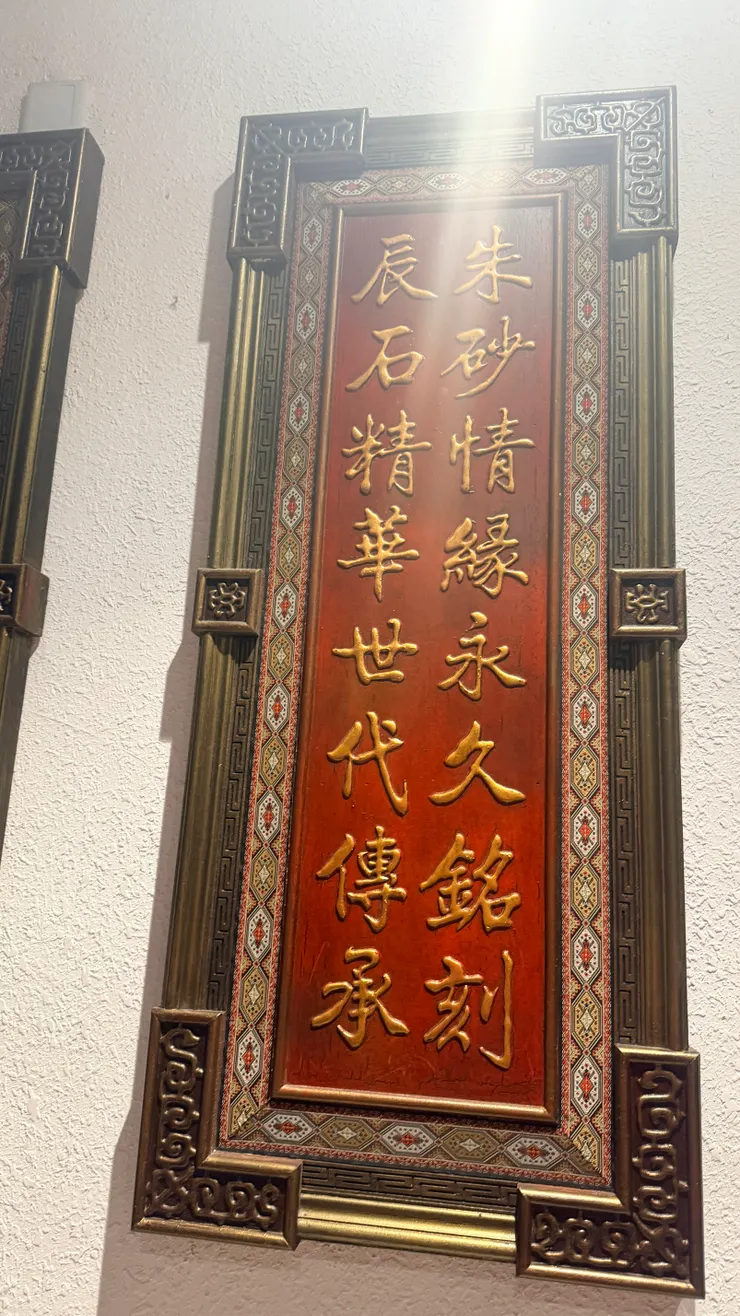 朱砂情緣永久銘刻
辰石精華世代傳承